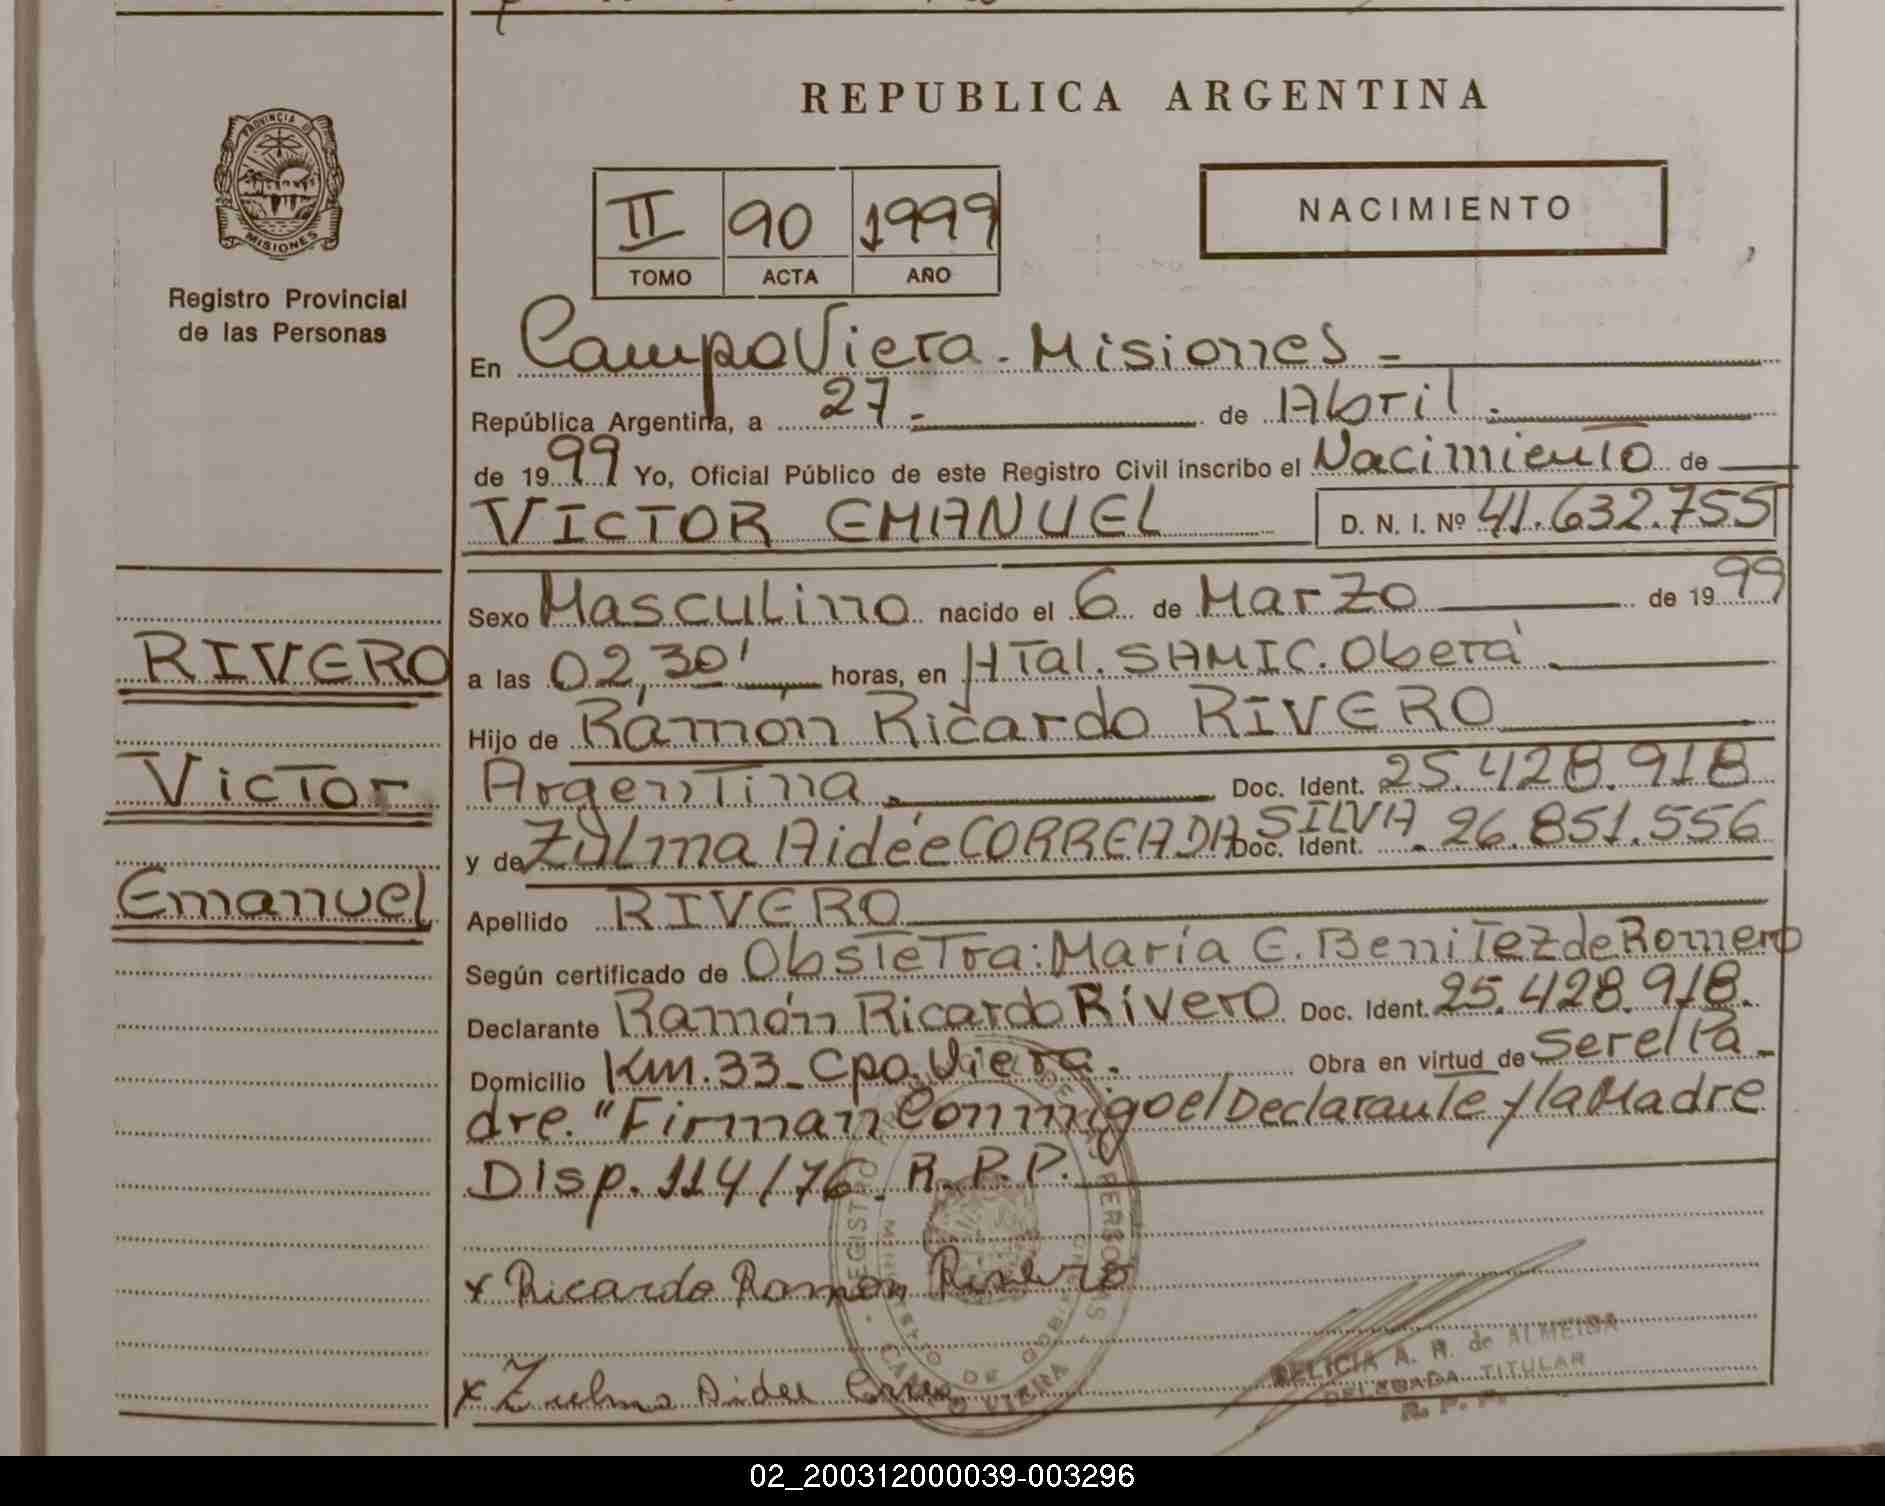 REPUBLICA ARGENTINA
PROVINCIA DE
MISIONES
Registro Provincial
de las Personas
II 90 1999
TOMO ACTA AÑO
NACIMIENTO
En Campo Viera - Misiones -
República Argentina, a 27 - de Abril -
de 1999 Yo, Oficial Público de este Registro Civil inscribo el Nacimiento de
VICTOR EMANUEL D. N. I. Nº 41.632.755
Sexo Masculino nacido el 6 de Marzo de 1999
RIVERO
a las 02,30' horas, en HTal. SAMIC. Oberá
Hijo de Ramón Ricardo RIVERO
Victor
Argentina Doc. Ident. 25.428.918
y de Zulma Aidée CORREA DA SILVA Doc. Ident. 26.851.556
Emanuel
Apellido RIVERO
Según certificado de Obstetra: María E. Benitez de Romero
Declarante Ramón Ricardo Rivero Doc. Ident. 25.428.918.
Domicilio Km. 33 - Cpo. Viera. Obra en virtud de ser el Pa-
dre. "Firman Conmigo el Declarante y la Madre
Disp. 114/76. R. P. P.
x Ricardo Ramon Rivero
x Zulma Aidee Correa
REGISTRO PERSONAS
MINISTERIO DE GOBIERNO
CAMPO VIERA
FELICIA A. R. de ALMEIDA
DELEGADA TITULAR
R. P. P.
02_200312000039-003296